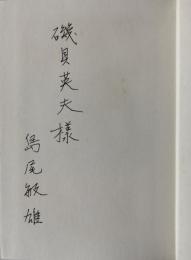 磯貝英夫様
島尾敏雄